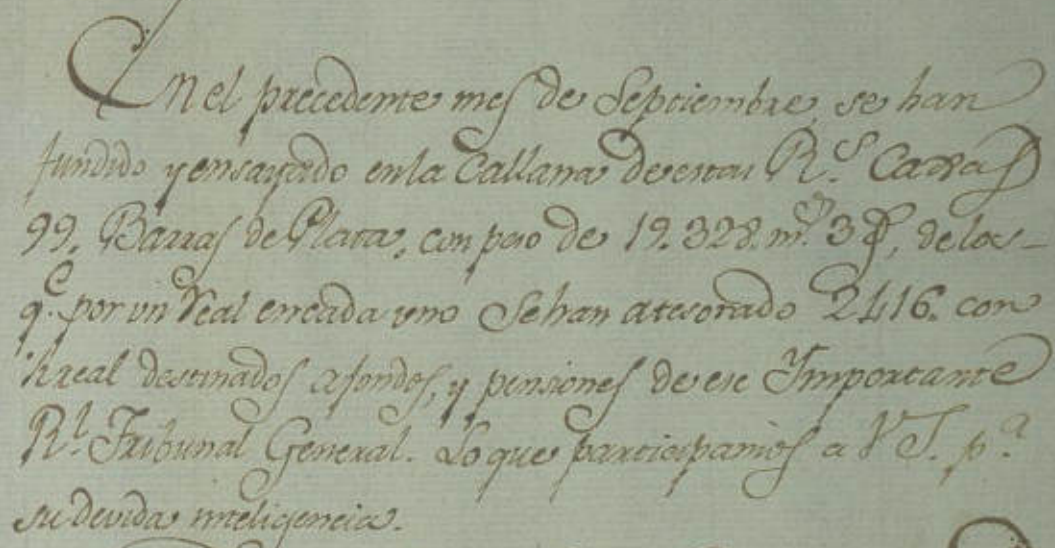 En el precedente mes de Septiembre, se han
fundido y ensayado en la Callana de estas R.s Caxas
99, Barras de Plata, con peso de 19.328. m.s 3 de los
q.e por un Real en cada uno Se han atesorado 2416. con
real destinados a fondos, y pensiones de ese Ymportante
R.l Tribunal General. Lo que participamos a V S. p.a
su devida inteligencia.